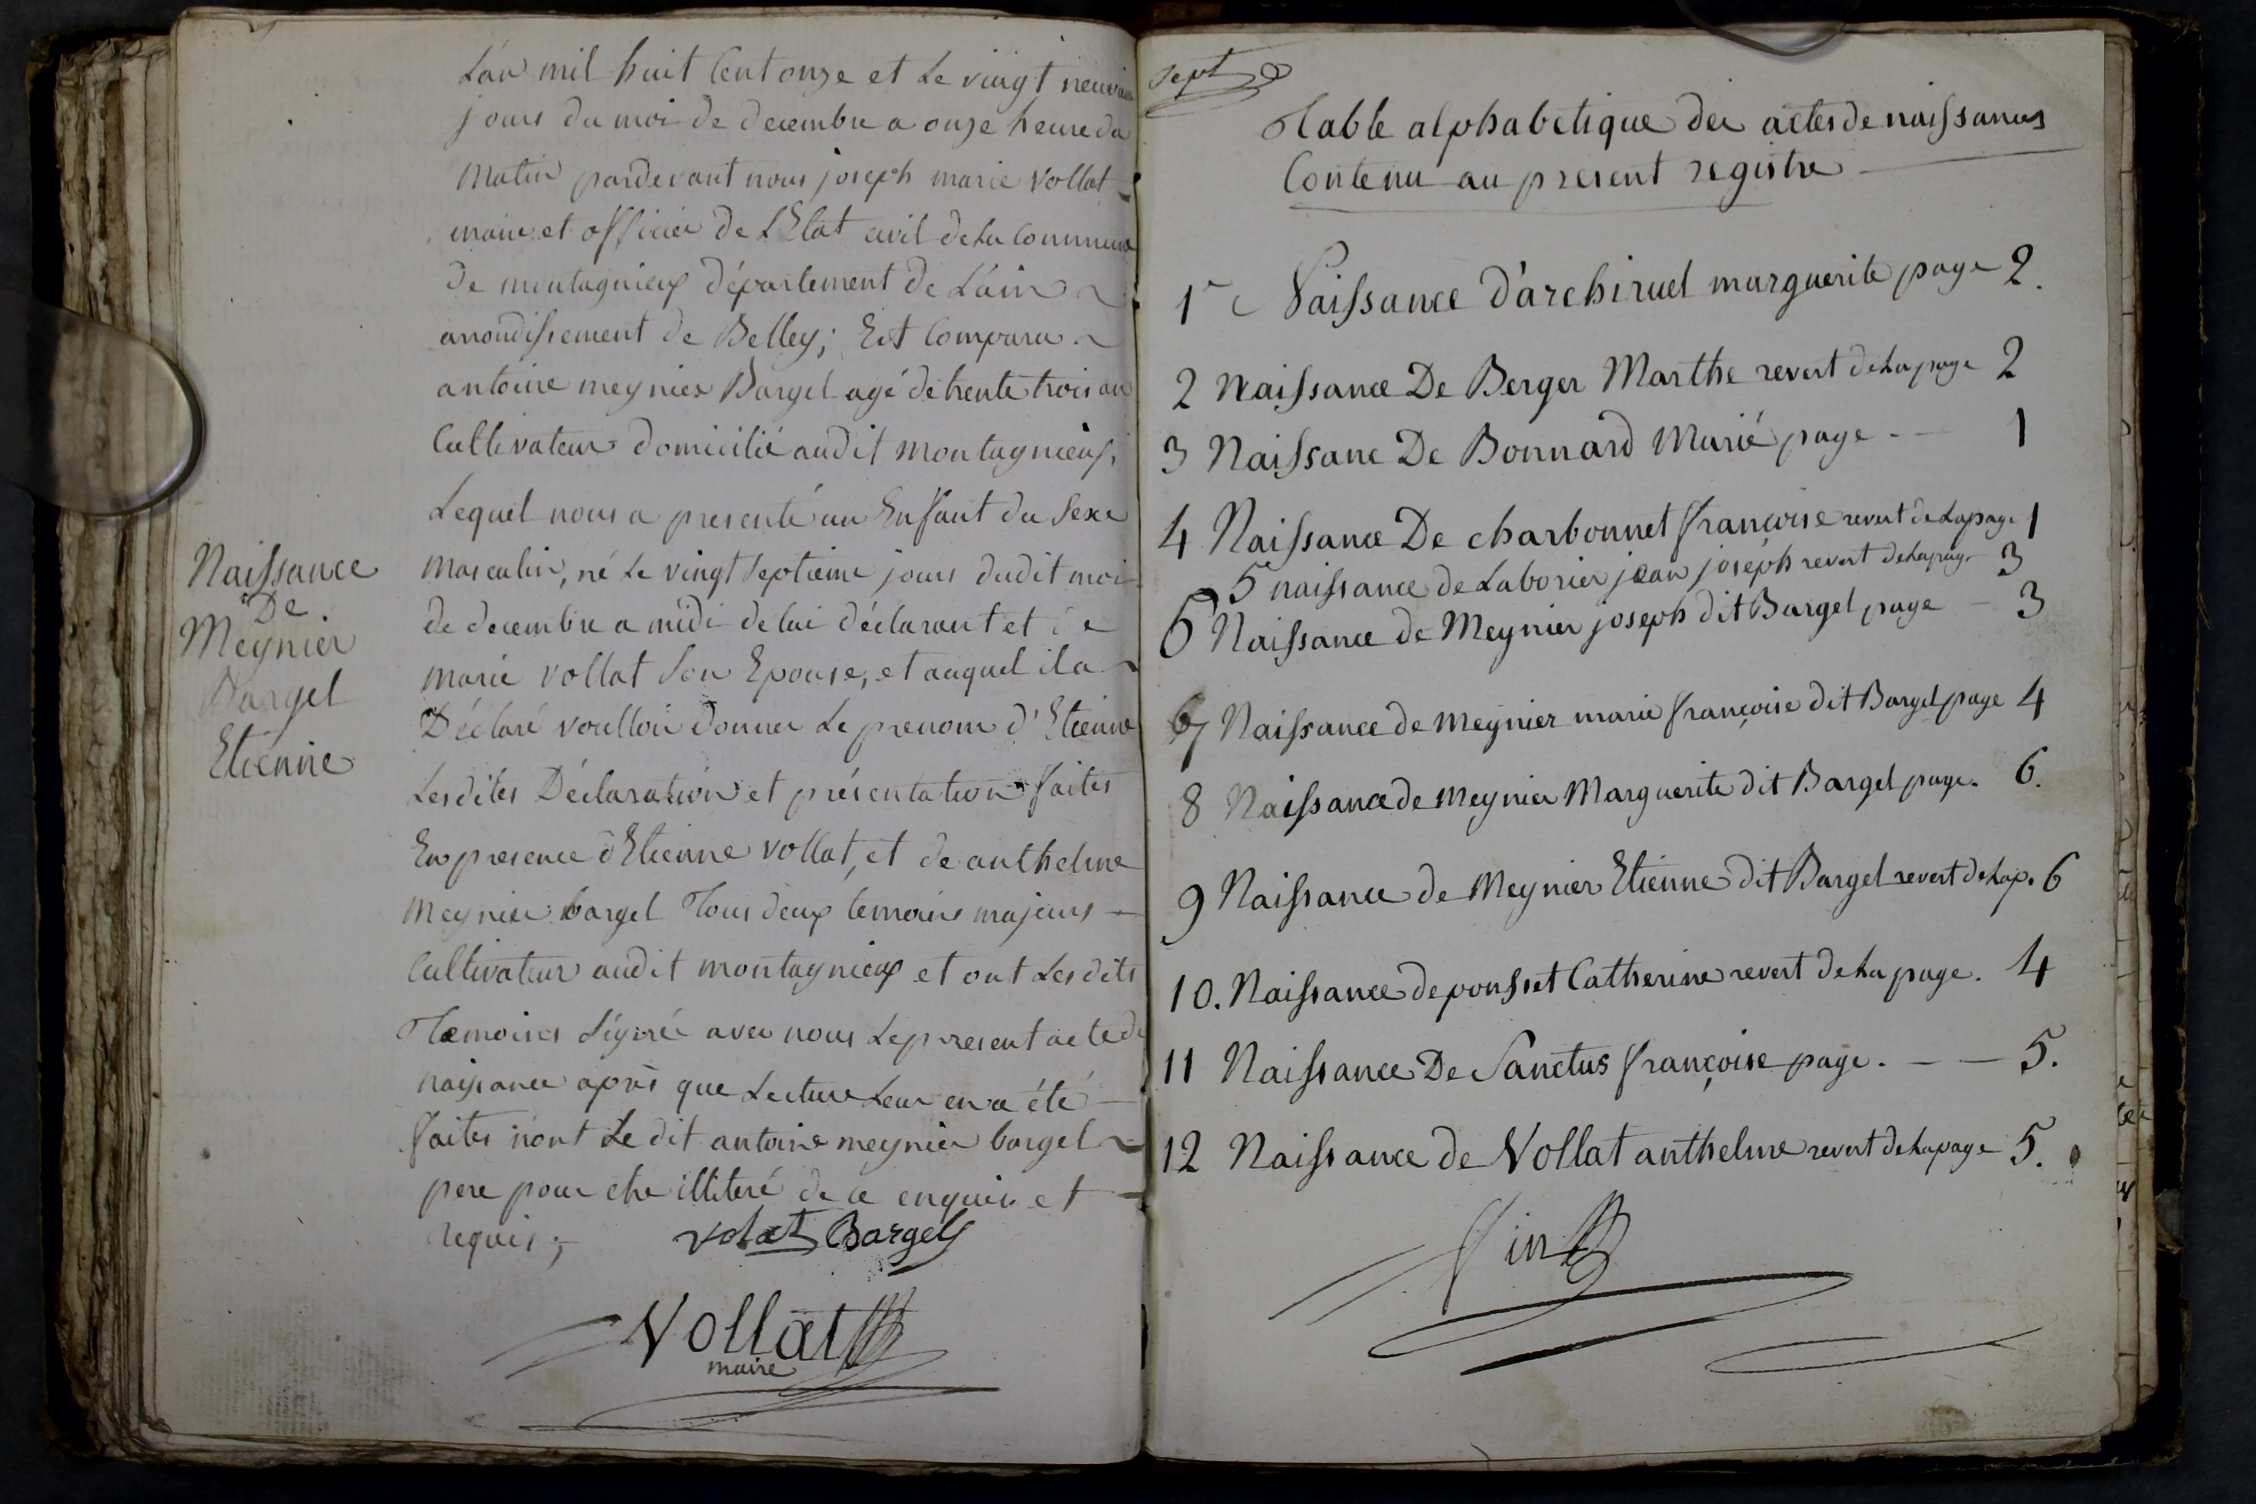 L'an mil huit Cent onze et Le vingt neuvieme
jours du moi de decembre a onze heure du
Matin pardevant nous joseph marie Vollat
maire et officier de L'Etat civil de La Commune
de montagnieux département de L'ain
arrondissement de Belley; Est Comparu
antoine meynier Bargel agé de trente trois an
Cultivateur domicilié audit montagnieux,
Lequel nous a presenté un Enfant du Sexe
Naissance
De
Meynier
Bargel
Etienne
masculin, né Le vingt Septieme jours dudit moi
de decembre a midi de lui déclarant et de
marie vollat Son Epouse, et auquel il a
Déclaré voulloir donner Le prenom d'Etienne
Lesdites Déclaration et présentation faites
En presence d'Etienne Vollat, et de anthelme
Meynier bargel Tous deux temoins majeurs
Cultivateur audit montagnieux et ont Lesdits
Temoins Signé avec nous Le present acte de
naissance après que Lecture Leur en a été
faites non Le dit antoine meynier bargel
pere pour etre illiteré de ce enquis et
requis;
Volat Bargel
Vollat
maire
Sept
Table alphabetique des actes de naissances
Contenu au present registre
1 Naissance d'archiruel marguerite page 2.
2 Naissance De Berger Marthe revert de La page 2
3 Naissanc De Bonnard Marié page 1
4 Naissance De charbonnet françoise revert de La page 1
5 naissance de Laborier jean joseph revert de La page 3
6 Naissance de Meynier joseph dit Bargel page 3
7 Naissance de meynier marie françoise dit Bargel page 4
8 Naissance de meynier Marguerite dit Bargel page. 6.
9 Naissance de Meynier Etienne dit Bargel revert de La p. 6
10. Naissance de pousset Catherine revert de La page. 4
11 Naissance De Sanctus françoise page. 5.
12 Naissance de Vollat anthelme revert de La page 5.
fin